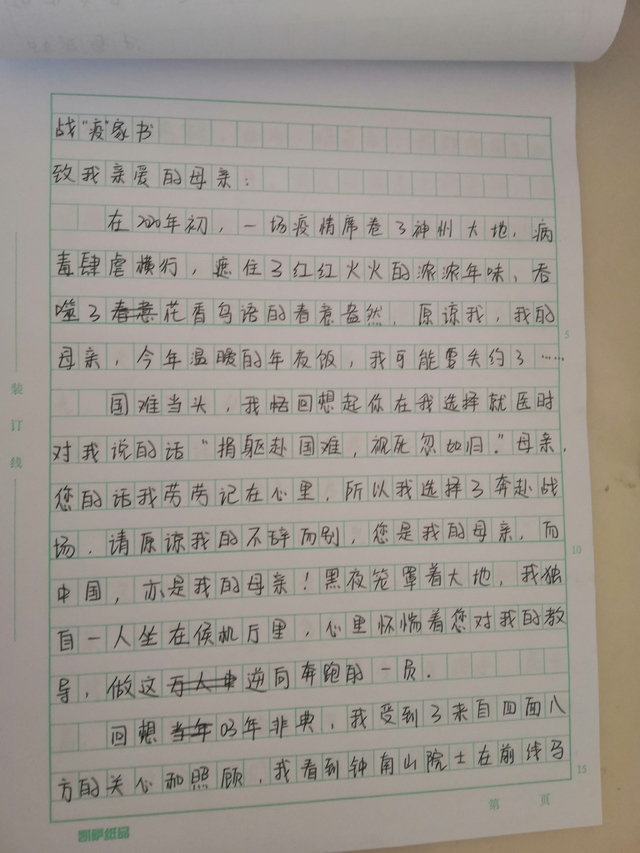 战"疫"家书
致我亲爱的母亲：
在2020年初，一场疫情席卷了神州大地，病
毒肆虐横行，遮住了红红火火的浓浓年味，吞
噬了花香鸟语的春意盎然，原谅我，我的
母亲，今年温暖的年夜饭，我可能要失约了……
国难当头，我恍回想起你在我选择就医时
对我说的话"捐躯赴国难，视死忽如归。"母亲，
您的话我劳劳记在心里，所以我选择了奔赴战
场，请原谅我的不辞而别，您是我的母亲，而
中国，亦是我的母亲！黑夜笼罩着大地，我独
自一人坐在候机厅里，心里怀惴着您对我的教
导，做这逆向奔跑的一员。
回想03年非典，我受到了来自四面八
方的关心和照顾，我看到钟南山院士在前线马
5
10
15
装订线
第 页
凯萨纸品